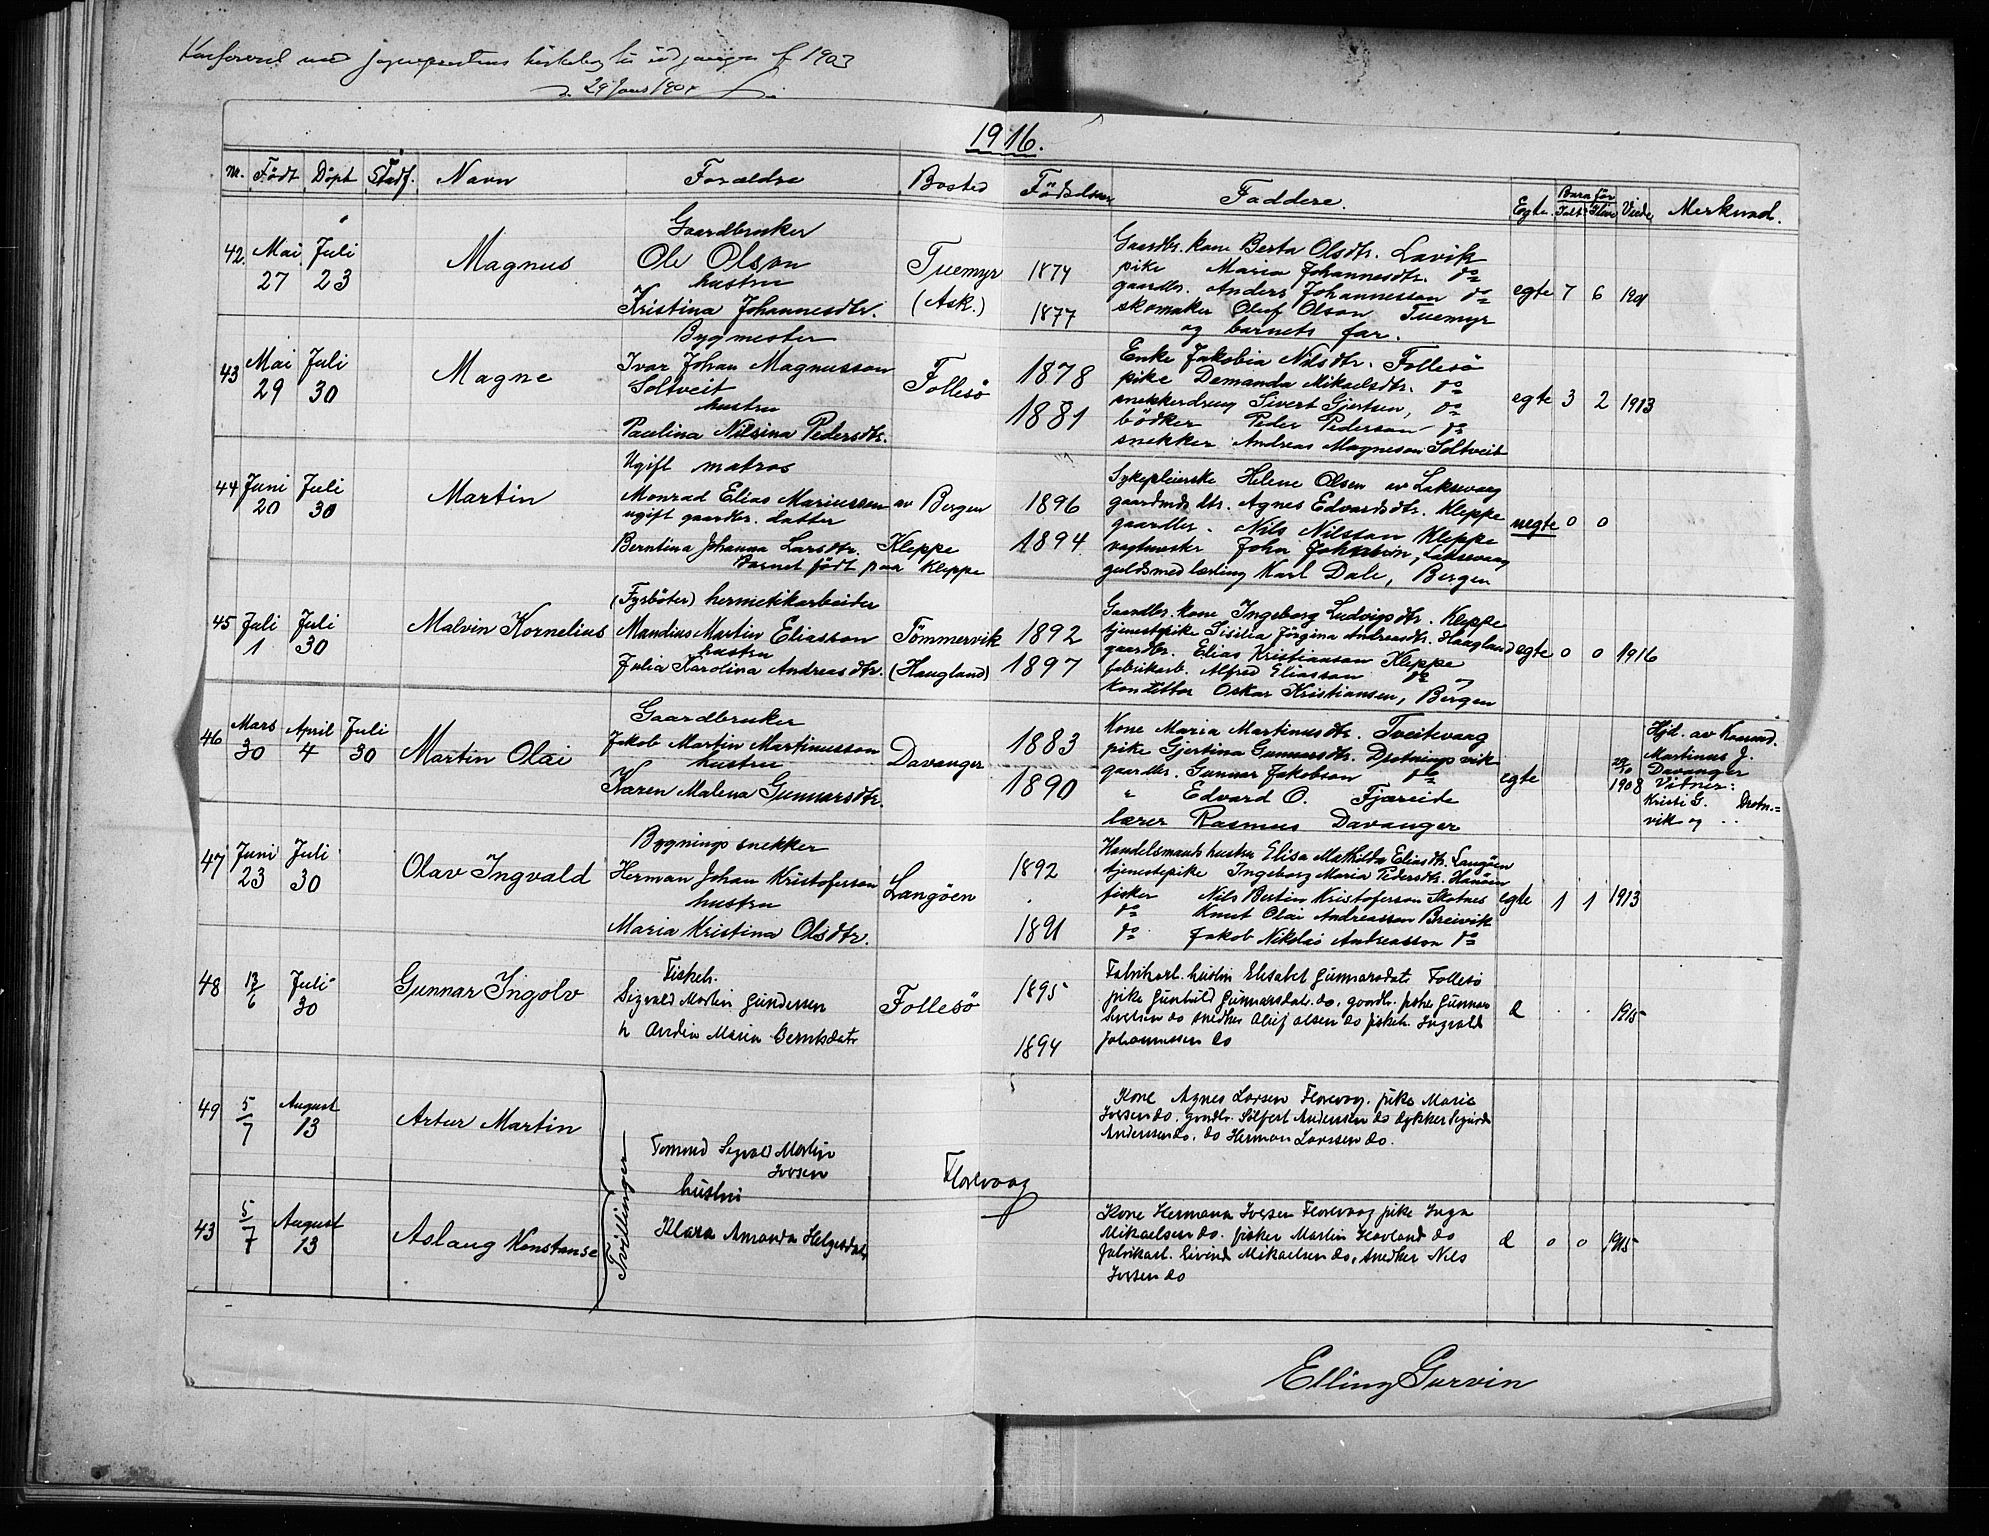 1916.
Nr. Födt Döpt Stadf. Navn Forældre Bosted Födselsaar Faddere. Egte Barn før Talt Ilive Viede Merknad.
42. Mai 27 Juli 23 Magnus
Gaardbruker
Ole Olson
hustru
Kristina Johannesdtr.
Tuemyr
(Ask.)
1874
1877
Gaardbr. kone Berta Olsdtr. Lavik
pike Maria Johannesdtr. do
gaardbr. Anders Johannesson do
skomaker Oluf Olson Tuemyr
og barnets far.
egte 7 6 1901
43 Mai 29 Juli 30 Magne
Bygmester
Ivar Johan Magnusson
Soltveit
hustru
Paulina Nilsina Pedersdtr.
Follesö
1878
1881
Enke Jakobia Nilsdtr. Follesö
pike Demanda Mikaelsdtr. do
snekkerdreng Sivert Gjertsen, do
bödker Peder Pederson do
snekker Andreas Magneson Soltveit
egte 3 2 1913
44 Juni 20 Juli 30 Martin
Ugift matros
Monrad Elias Mariussen
ugift gaardbr. datter
Berntina Johanna Larsdtr.
Barnet födt paa Kleppe
av Bergen
Kleppe
1896
1894.
Sykepleierske Helene Olsen av Laksevaag
gaardmds dtr. Agnes Edvardsdtr. Kleppe
gaardbr. Nils Nilsson Kleppe
vagtmester John Johnson, Laksevaag
guldsmedlærling Karl Dale, Bergen
uegte 0 0
45 Juli 1 Juli 30 Malvin Kornelius
(Fyrböter) hermetikarbeider
Mandius Martin Eliasson
hustru
Julia Karolina Andreasdtr.
Tömmervik
(Haugland)
1892
1897
Gaardbr. kone Ingeborg Ludvigsdtr. Kleppe
tjenestepike Sisilia Jörgina Andreasdtr. Haugland
gaardbr. Elias Kristiansson Kleppe
fabrikarb. Alfred Eliasson do
konditor Oskar Kristiansen, Bergen
egte 0 0 1916
46 Mars 30 April 4 Juli 30 Martin Olai
Gaardbruker
Jakob Martin Martinusson
hustru
Karen Malena Gunnarsdtr.
Davanger
1883
1890
Kone Maria Martinusdtr. Tveitevaag
pike Gjertina Gunnarsdtr. Drotningsvik
gaardbr. Gunnar Jakobson do
" Edvard O. Fjæreide
lærer Rasmus Davanger
egte
1908
Hjd. av Konrad.
Martinus J.
Davanger
Vitner:
Kristi G. Drotn.=
vik og
47 Juni 23 Juli 30 Olav Ingvald
Bygningssnekker
Herman Johan Kristoferson
hustru
Maria Kristina Olsdtr.
Langöen
1892
1891
Handelsmands hustru Elisa Mathilda Eliasdtr. Langöen
tjenestepike Ingeborg Maria Pedersdtr. Hanöen
fisker Nils Bertin Kristoferson Skotnes
do Knut Olai Andreasson Breivik
do Jakob Nikolai Andreasson do
egte 1 1 1913
48 13/6 Juli 30 Gunnar Ingolv
Fisker.
Sigvald Martin Gundersen
h Andia Maria Berntsdatr
Follesö
1895
1894
Fabrikarb. hustru Elisabet Gunnarsdatr Follesö
pike Gunhild Gunnarsdatr. do. gaardbr. Gunnar
Severin do snedker Oluf Olsen do fisker. Ingvald
Johannessen do
e . . 1915
49 5/7 August 13 Artur Martin
Tvillinger
Tomred Sigvald Martin
Iversen
hustru
Klara Amanda Helgesdatr
Florevaag
Kone Agnes Larsen Florevaag. pike Marie
Iversen do. gaardbr. Silfert Anderssen do dykker Sigurd
Anderssen do. do Herman Larssen do.
43 5/7 August 13 Aslaug Konstanse
Kone Hermana Iversen Florevaag pike Inga
Mikaelsen do. fisker Martin Hovland do
fabrikarb. Eivind Mikaelsen do. snedker Nils
Iversen do
e 0 0 1915
Elling Gurvin